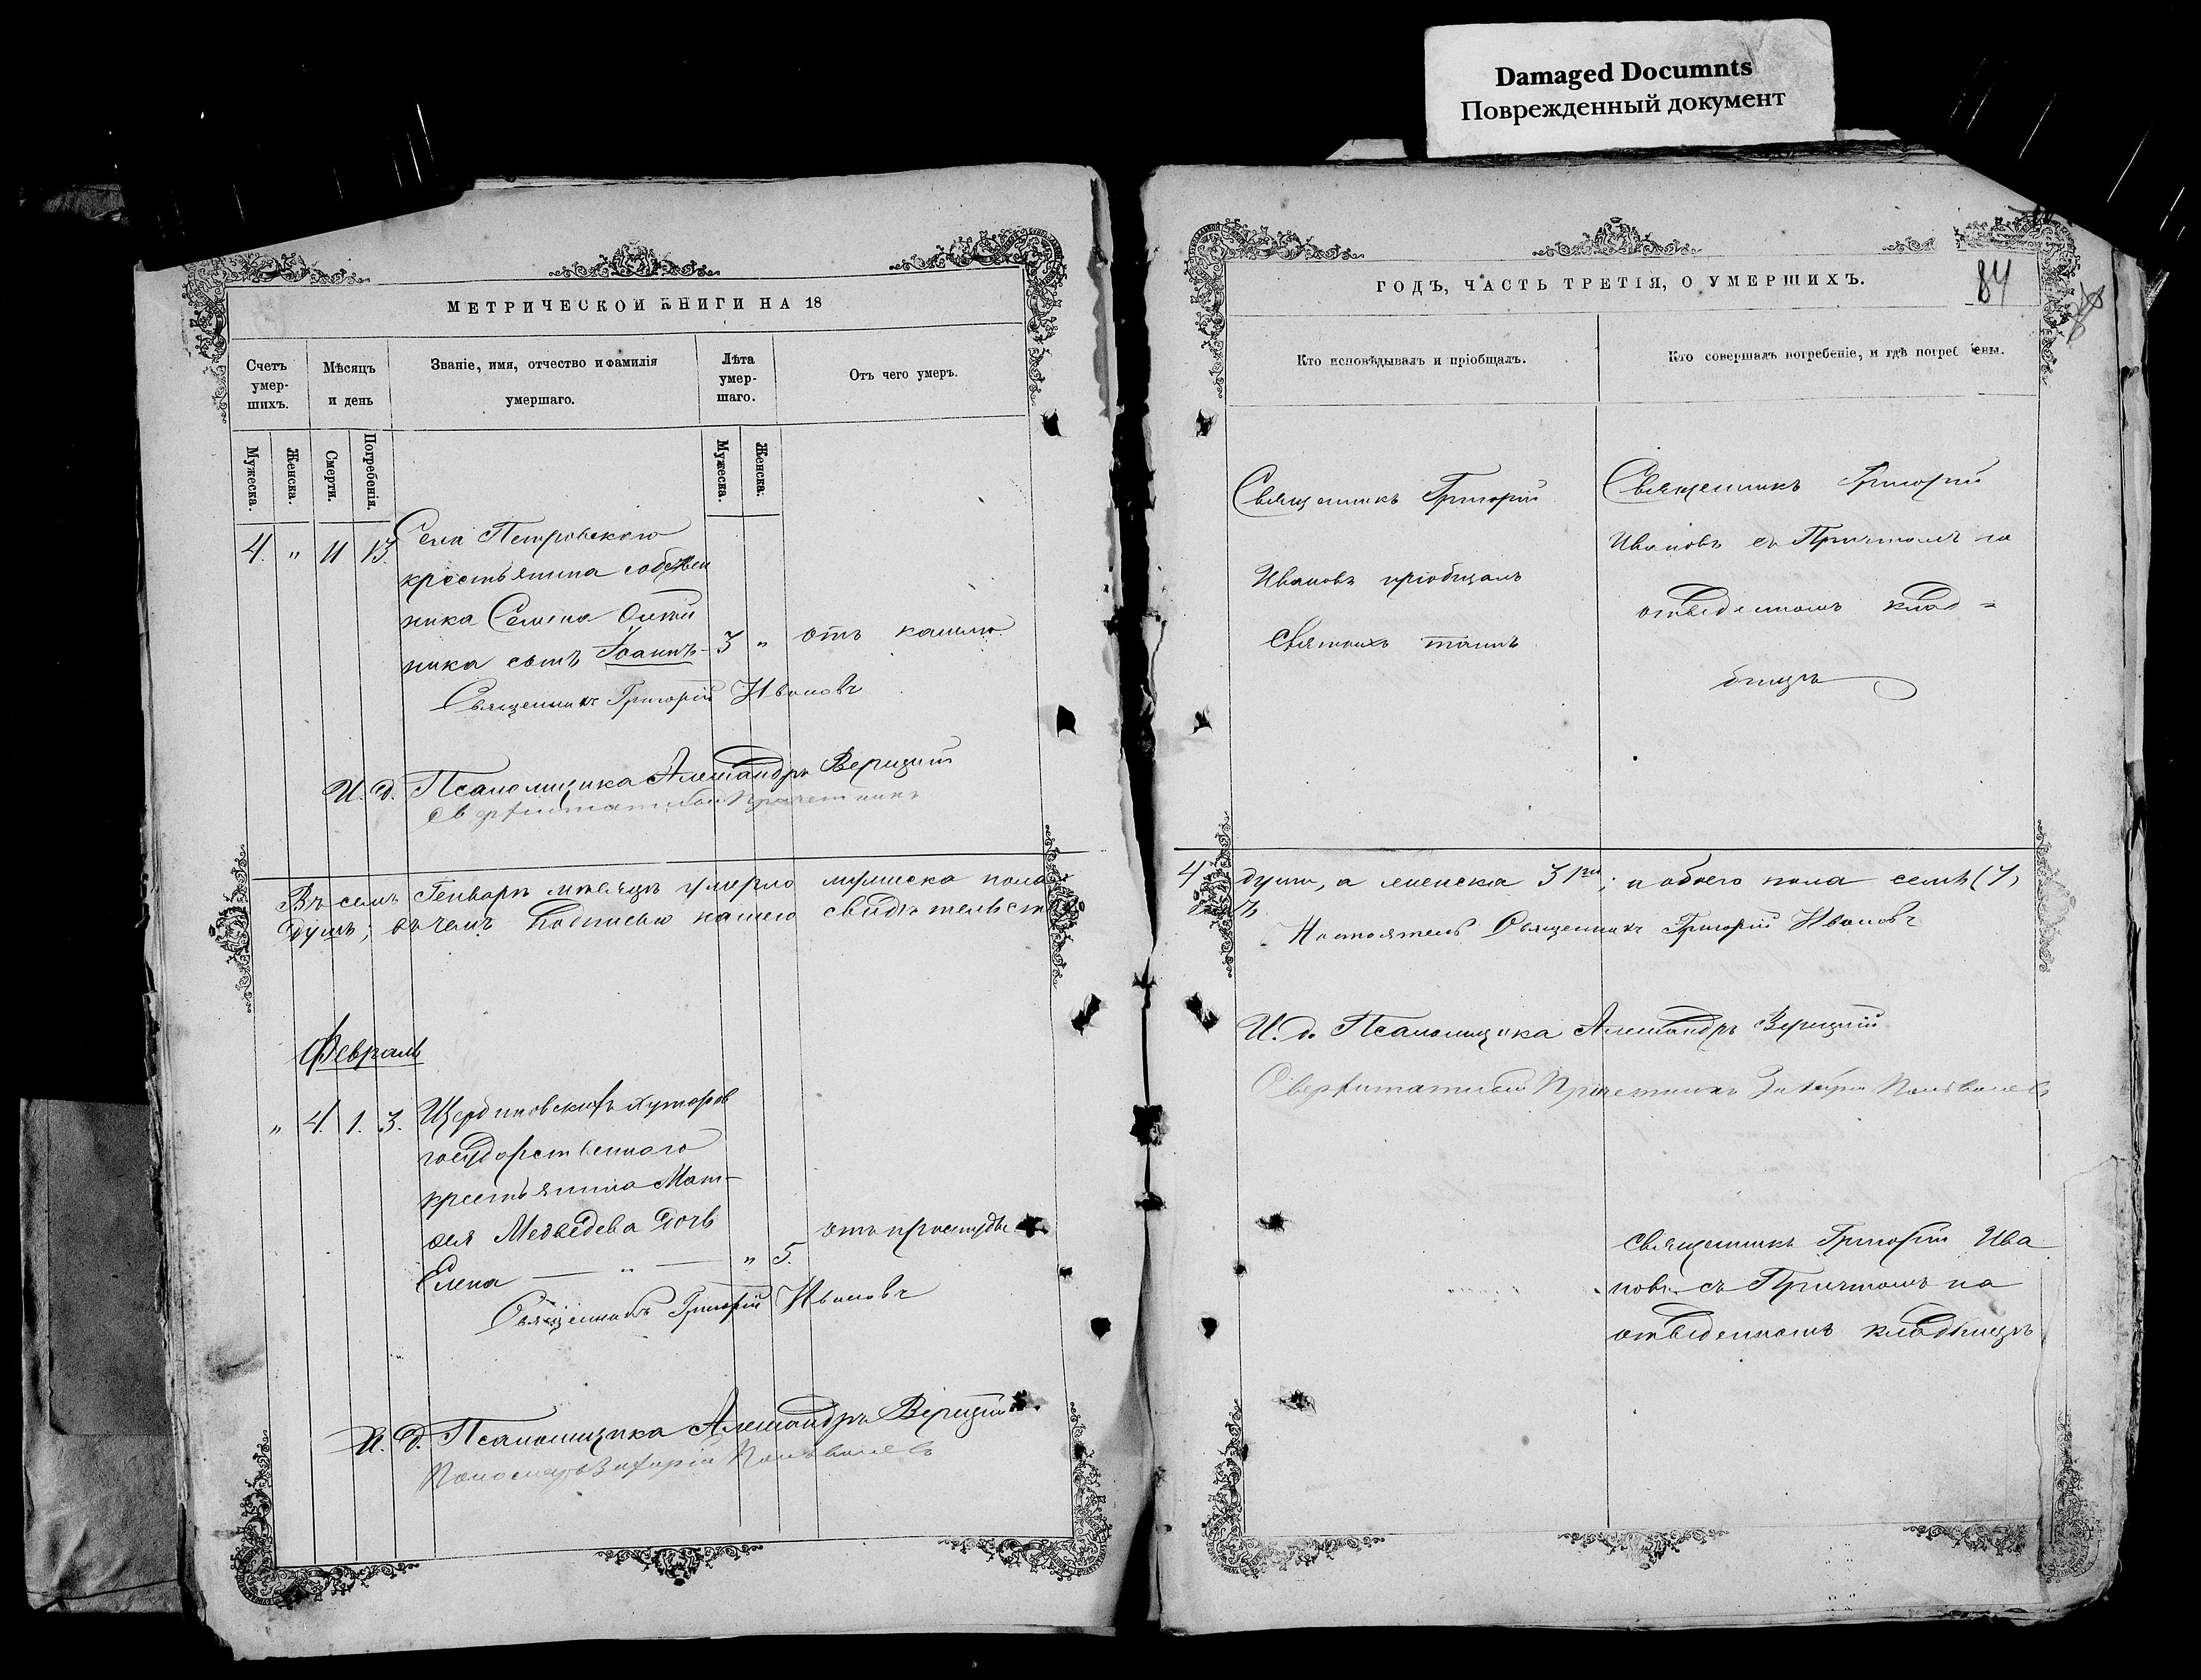 Damaged Documnts
Поврежденный документ
МЕТРИЧЕСКОЙ КНИГИ НА 18
Счетъ умер-шихъ.
Мѣсяцъ и день
Званіе, имя, отчество и фамилія умершаго.
Лѣта умер-шаго.
Отъ чего умеръ.
Мужеска.
Женска.
Смерти.
Погребенія.
Мужеска.
Женска.
4. " 11 13. Села Петровскаго
крестьянина собствен
ника Семена
ника сынъ Іоаннъ 3 " отъ кашлю.
Священникъ Григорій Ивановъ
И. д. Псаломщика Александръ Верицкій
Сверхштатный Причетникъ
Въ семъ Генварѣ мѣсяцѣ умерло мужеска пола
душъ; въ чемъ подписью нашею свидѣтельст
Февраль
" 4. 1. 3. Щербиновскихъ хуторовъ
государственнаго
крестьянина Мат-
фея Медведева дочь
Елена " " 5. отъ простуды
Священникъ Григорій Ивановъ
И. д. Псаломщика Александръ Верицкій
Захарій
ГОДЪ, ЧАСТЬ ТРЕТІЯ, О УМЕРШИХЪ.
84
Кто исповѣдывалъ и пріобщалъ.
Кто совершалъ погребеніе, и гдѣ погребены.
Священникъ Григорій
Ивановъ пріобщалъ
Святыхъ таинъ
Священникъ Григорій
Ивановъ съ Причтомъ на
отведенномъ клад=
бищѣ
4 души, а женска 3 ри; и обоего пола семь (7)
Настоятель Священникъ Григорій Ивановъ
И. д. Псаломщика Александръ Верицкій
Сверхштатный Причетникъ Захарій
Священникъ Григорій Ива
новъ съ Причтомъ на
отведенномъ кладбищѣ